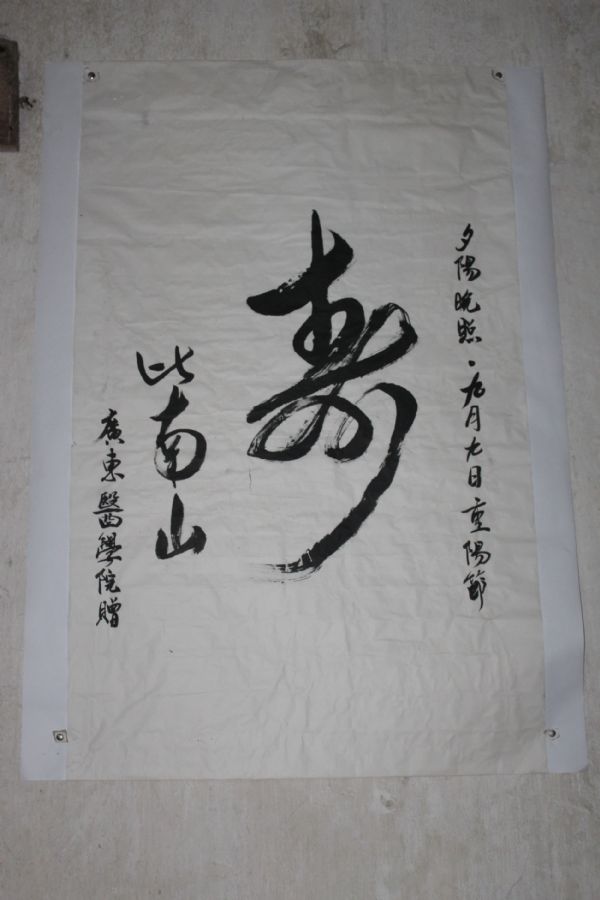 夕陽晚照·九月九日重陽節
壽
比南山
廣東醫學院贈